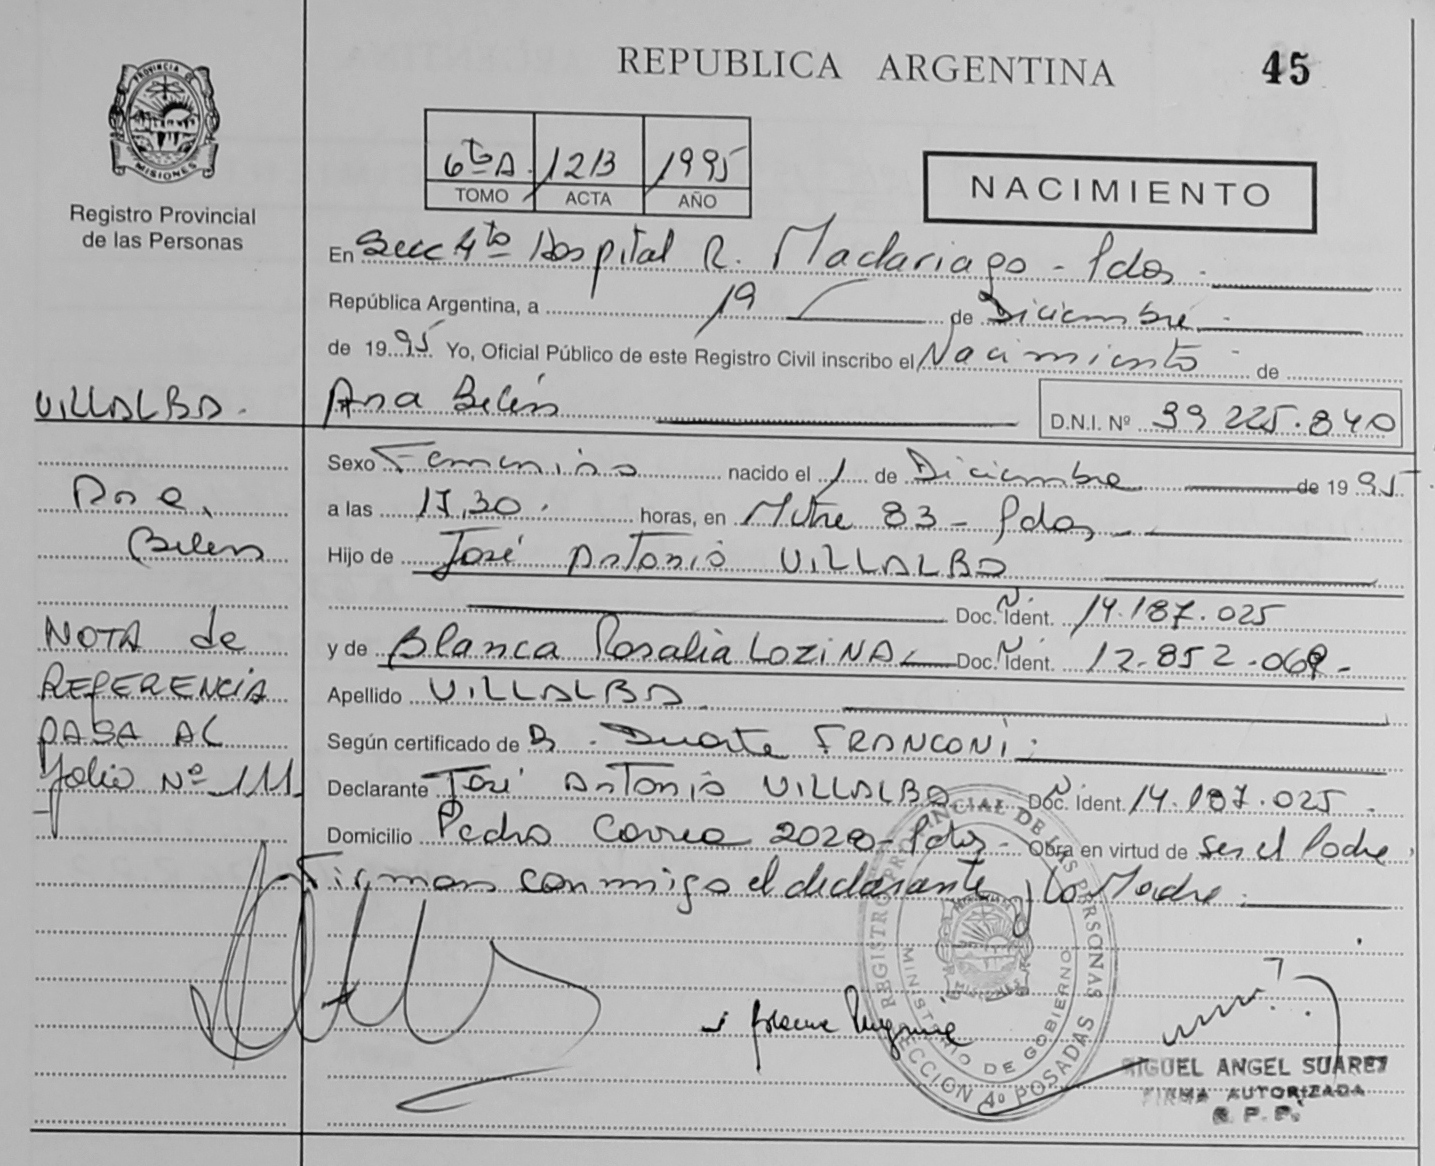 REPUBLICA ARGENTINA
45
PROVINCIA DE
MISIONES
Registro Provincial
de las Personas
6to A 1213 1995
TOMO ACTA AÑO
NACIMIENTO
En Secc 4to Hospital R. Madariaga - Pdas.
República Argentina, a 19 de Diciembre
de 1995 Yo, Oficial Público de este Registro Civil inscribo el Nacimiento de
VILLALBA. Ana Belén D.N.I. Nº 39 225.840
Sexo Femenino nacido el 1 de Diciembre de 1995
Ana a las 17,30. horas, en Mitre 83 - Pdas
Belén Hijo de José Antonio VILLALBA
Doc. Ident. 14.187.025
NOTA de y de Blanca Rosalia LOZINA Doc. Ident. 12.852.069-
REFERENCIA Apellido VILLALBA
PASA AL Según certificado de D. Duarte FRANCONI
folio Nº 111 Declarante José Antonio VILLALBA Doc. Ident. 14.187.025.
Domicilio Pedro Correa 2028 - Pdas - Obra en virtud de ser el Padre,
Firman conmigo el declarante y la Madre.
REGISTRO PROVINCIAL DE LAS PERSONAS
MINISTERIO DE GOBIERNO
SECCION 4º POSADAS
MIGUEL ANGEL SUAREZ
FIRMA AUTORIZADA
R. P. P.